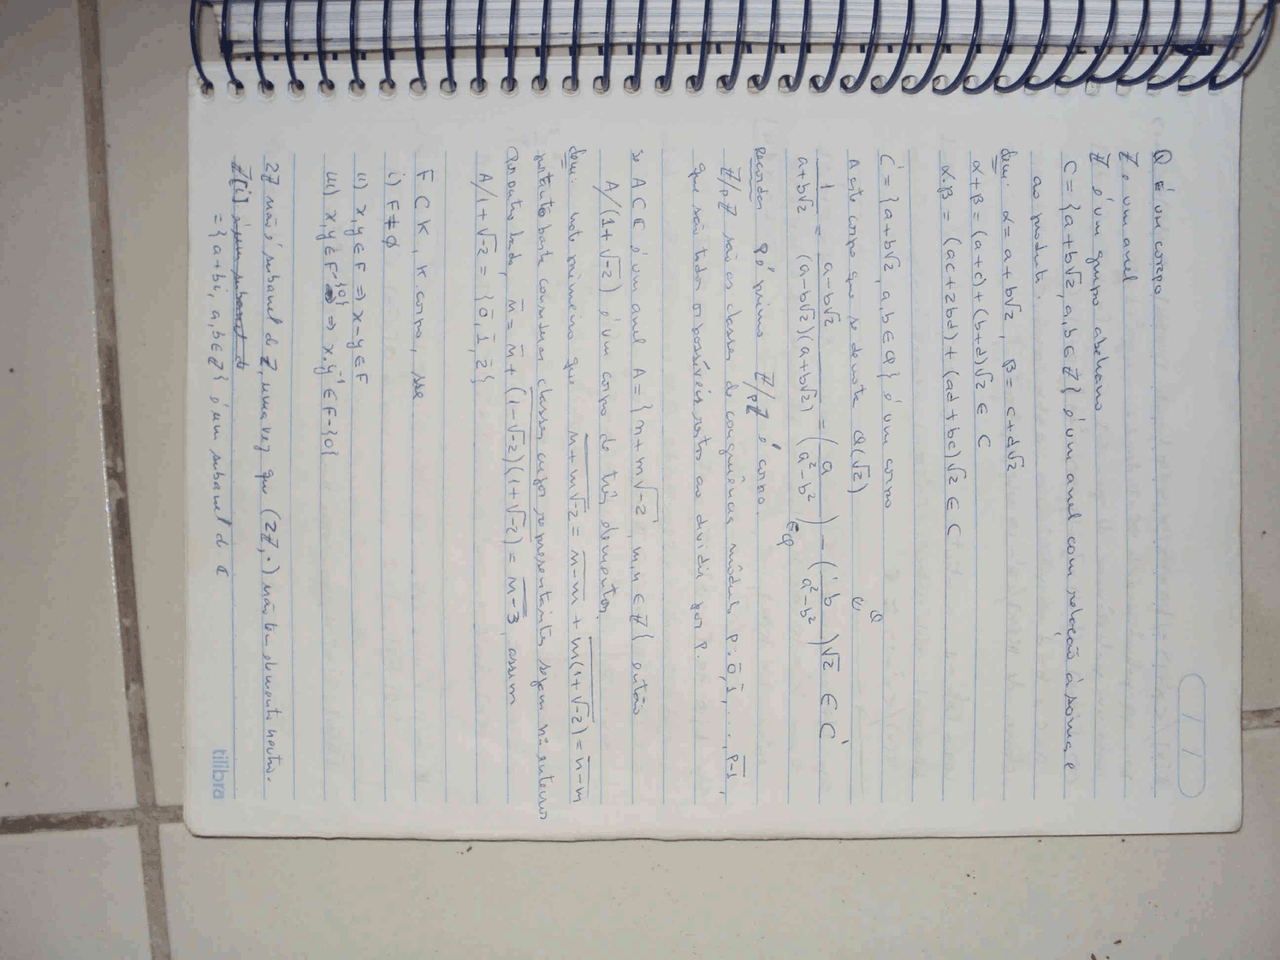 Q é um corpo
Z é um anel
Z é um grupo abeliano
C = {a+b√2, a,b ∈ Z} é um anel com relação à soma e
ao produto.
dem: α = a+b√2, β = c+d√2
α+β = (a+c)+(b+d)√2 ∈ C
α·β = (ac+2bd)+(ad+bc)√2 ∈ C
C' = {a+b√2, a,b ∈ Q} é um corpo
A este corpo que se denota Q(√2)
1/(a+b√2) = (a-b√2)/((a-b√2)(a+b√2)) = (a/(a²-b²)) - (b/(a²-b²))√2 ∈ C'
∈Q
Recordar P é primo Z/pZ é corpo.
Z/pZ são as classes de congruências módulo P: 0̄, 1̄, ..., P-1,
que são todos os possíveis restos ao dividir por P.
Se A ⊂ C é um anel A = {n+m√-2, m,n ∈ Z} então
A/(1+√-2) é um corpo de três elementos.
dem: note primeiro que n+m√-2 = n-m + m(1+√-2) = n-m
portanto basta considerar classes cujos representantes sejam nº inteiros
Por outro lado, n̄ = n + (1-√-2)(1+√-2) = n-3, assim
A/1+√-2 = {0̄, 1̄, 2̄}
F ⊂ K, K corpo, se
i) F ≠ ∅
ii) x,y ∈ F ⇒ x-y ∈ F
iii) x,y ∈ F-{0} ⇒ x·y⁻¹ ∈ F-{0}
2Z não é subanel de Z, uma vez que (2Z,·) não tem elemento neutro.
Z[i] é um subanel de
= {a+bi, a,b ∈ Z} é um subanel de C
tilibra